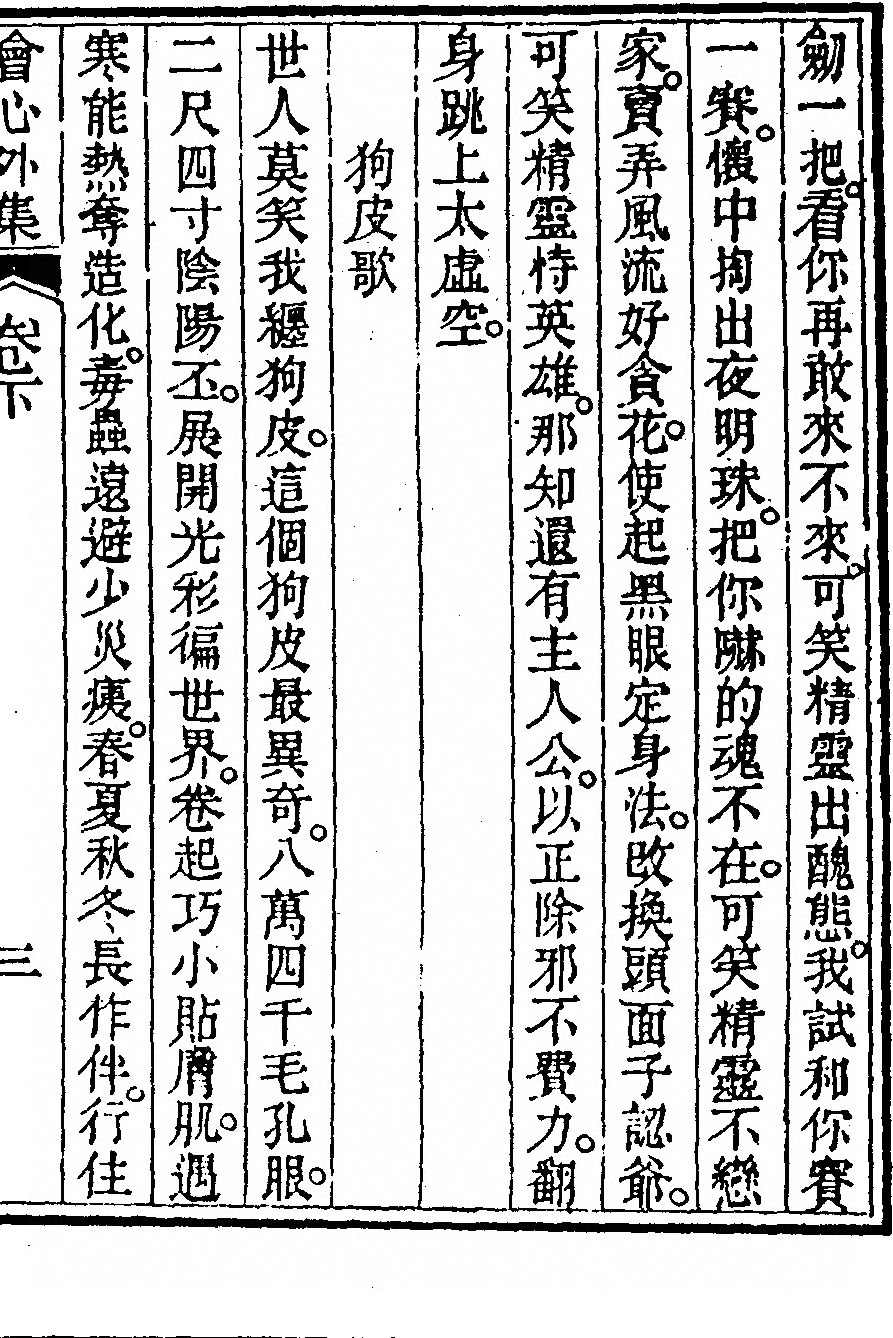 劒一把。看你再敢來不來。可笑精靈出醜態。我試和你賽
一賽。懷中掏出夜明珠。把你嚇的魂不在。可笑精靈不戀
家。賣弄風流好貪花。使起黑眼定身法。改換頭面子認爺。
可笑精靈恃英雄。那知還有主人公。以正除邪不費力。翻
身跳上太虛空。
狗皮歌
世人莫笑我纒狗皮。這個狗皮最異奇。八萬四千毛孔眼。
二尺四寸陰陽丕。展開光彩徧世界。卷起巧小貼膚肌。遇
寒能熱奪造化。毒蟲遠避少災痍。春夏秋冬長作伴。行住
會心外集 卷下 三